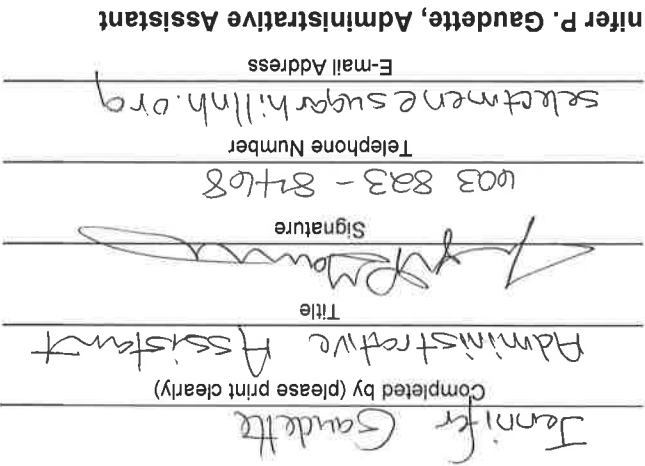 Jennifer Gaudette
Completed by (please print clearly)
Administrative Assistant
Title
Signature
603 823-8468
Telephone Number
selectmen@sugarhillnh.org
E-mail Address
nifer P. Gaudette, Administrative Assistant